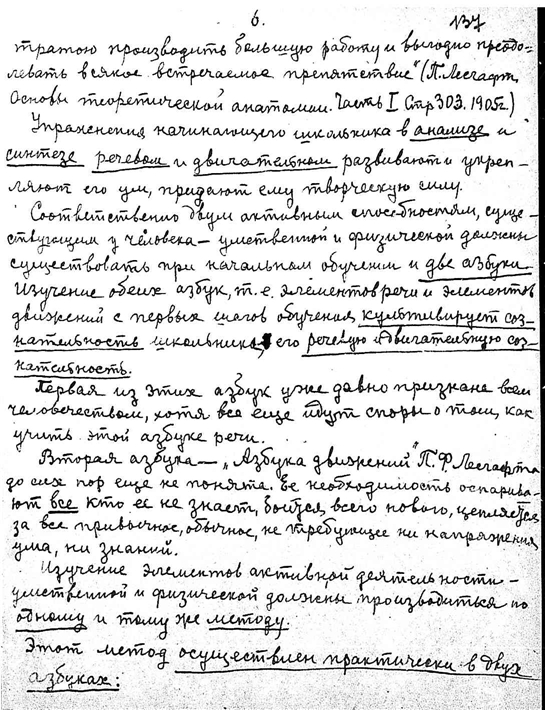 6.
137
тратою производить большую работу и выгодно преодо-
левать всякое встречаемое препятствие" (П. Лесгафт.
Основы теоретической анатомии. Часть I Стр 303. 1905г.)
Упражнения начинающего школьника в анализе и
синтезе речевом и двигательном развивают и укреп-
ляют его ум, придают ему творческую силу.
Соответственно двум активным способностям, суще-
ствующим у человека – умственной и физической должны
существовать при начальном обучении и две азбуки.
Изучение обеих азбук, т.е. элементов речи и элементов
движений с первых шагов обучения культивирует соз-
нательность школьника, его речевую и двигательную соз-
нательность.
Первая из этих азбук уже давно признана всем
человечеством, хотя все еще идут споры о том, как
учить этой азбуке речи.
Вторая азбука – „Азбука движений" П.Ф. Лесгафта
до сих пор еще не понята. Ее необходимость оспарива-
ют все кто ее не знает, боится всего нового, цепляется
за все привычное, обычное, не требующее ни напряжения
ума, ни знаний.
Изучение элементов активной деятельности –
умственной и физической должны производиться по
одному и тому же методу.
Этот метод осуществлен практически в двух
азбуках: